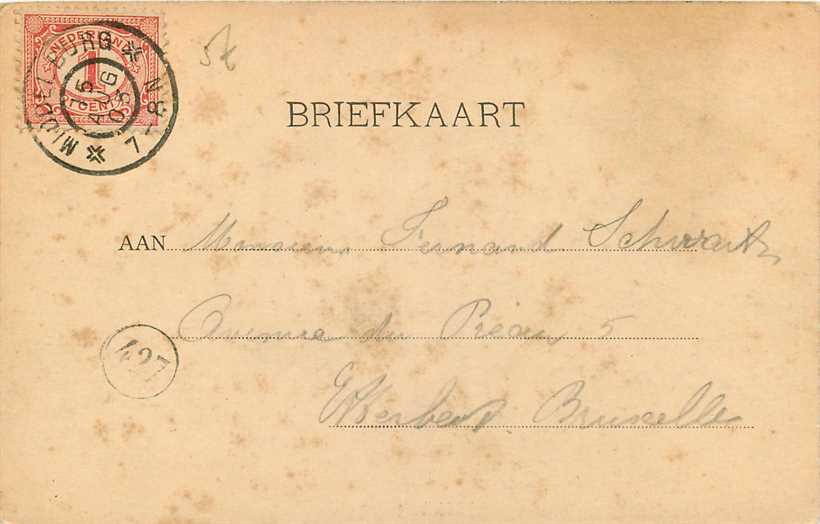 NEDERLAND
1
CENT
MIDDELBURG
25
AUG
03
7-8N
BRIEFKAART
AAN Monsieur Fernand Schwartz
Avenue du Préau 5
Etterbeek Bruxelles
427